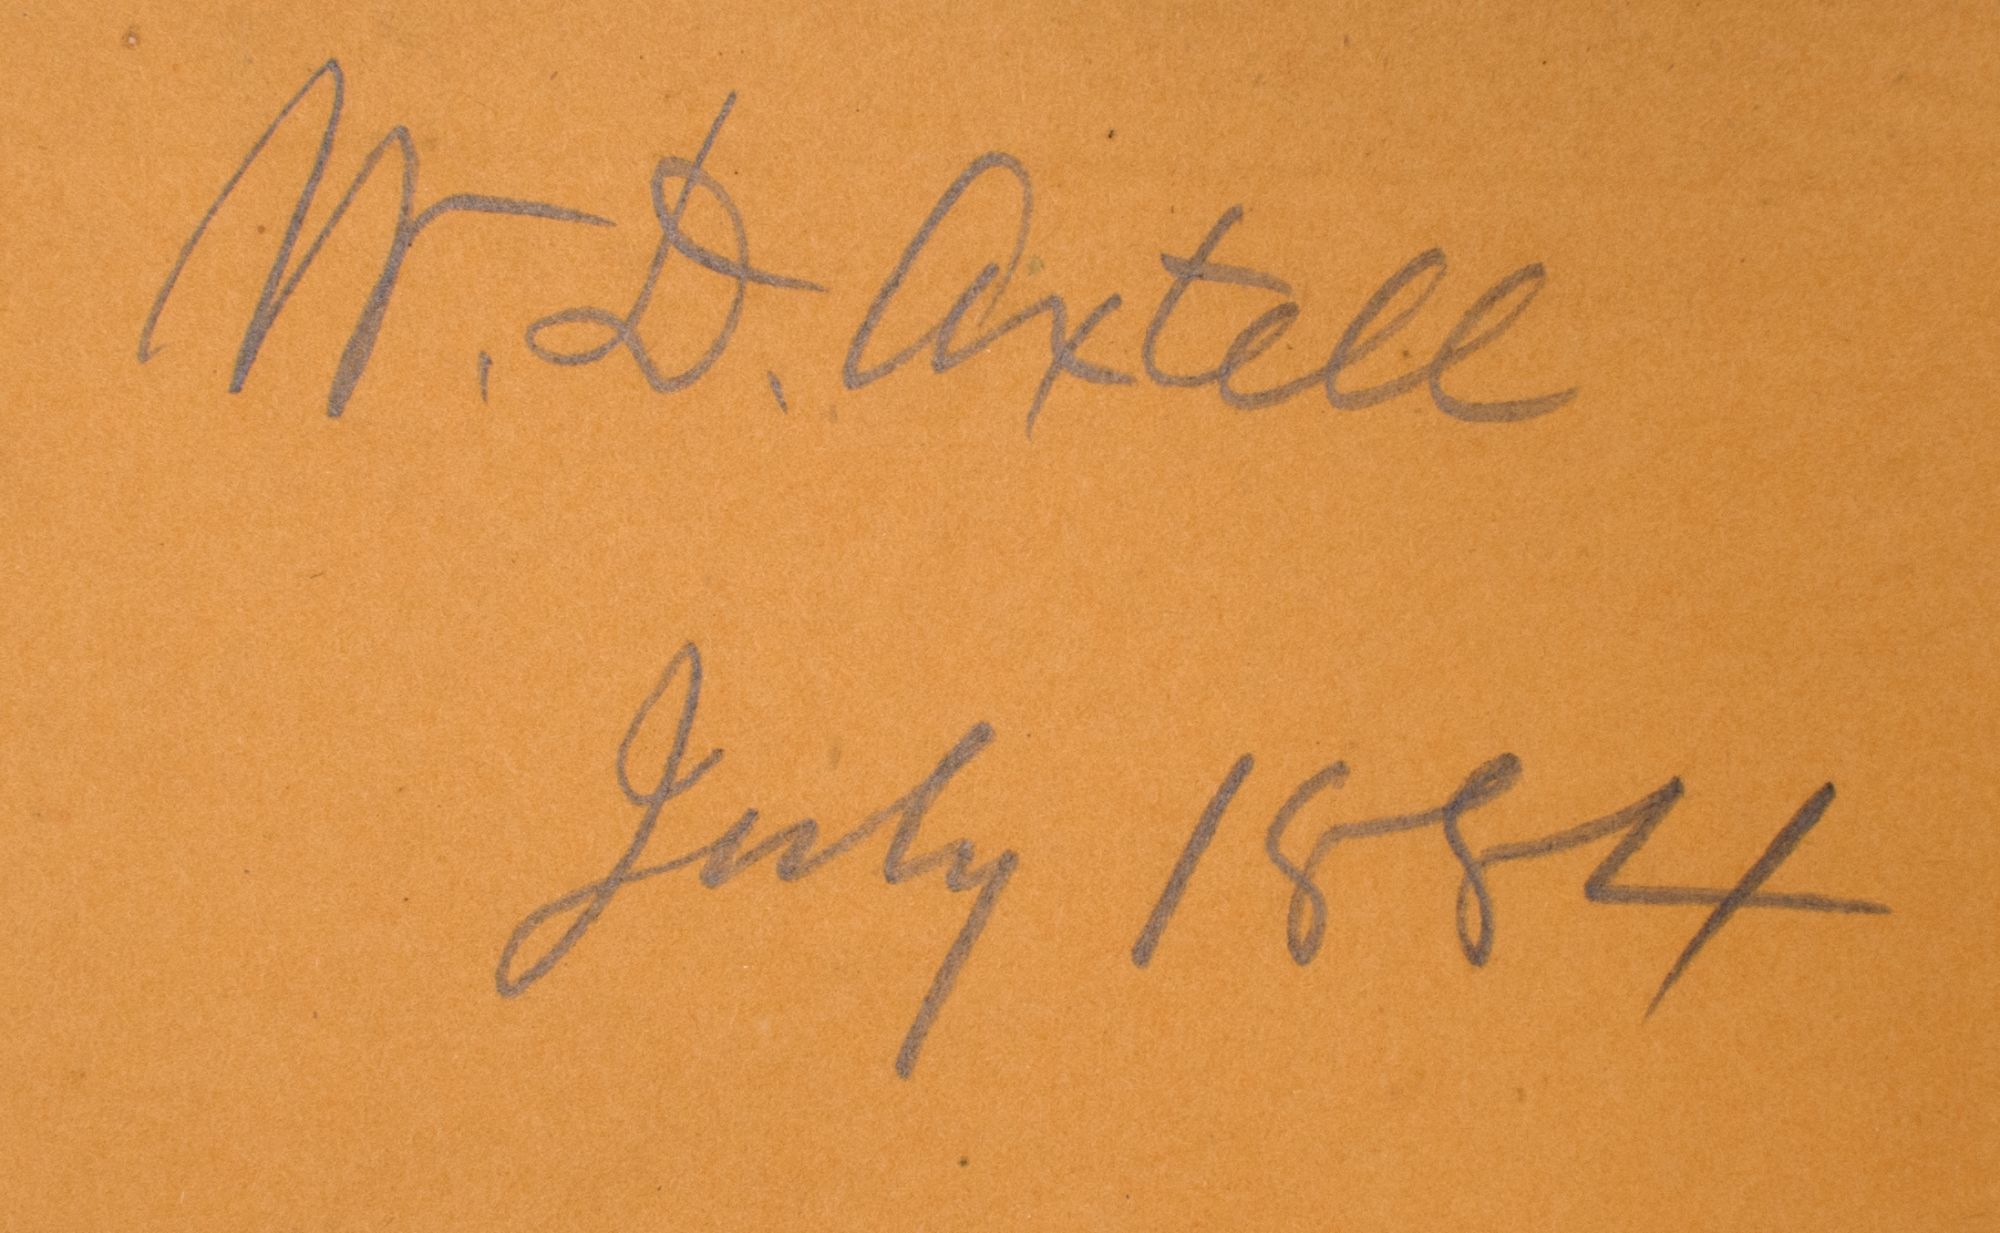 W. D. Axtell
July 1884